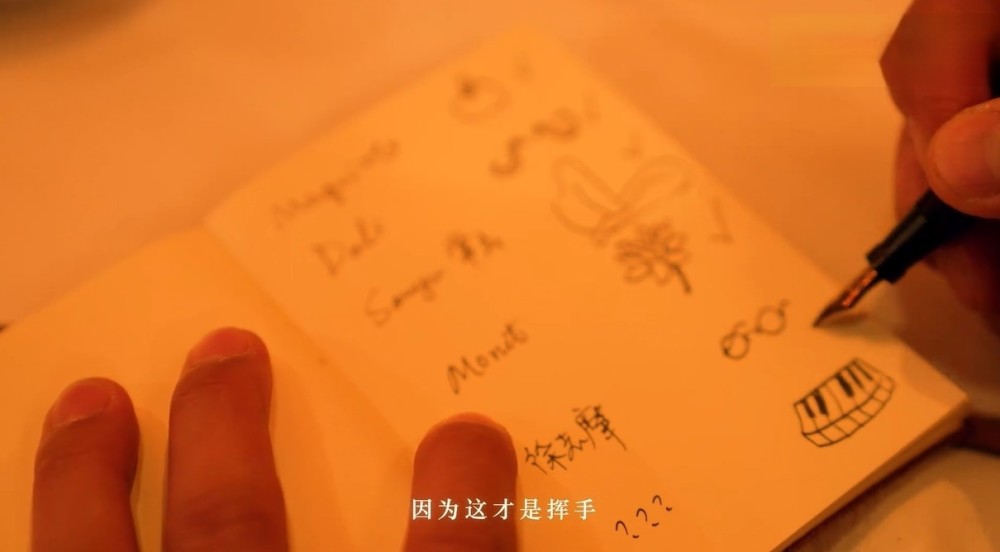 Magritte
Dali
Sanyu 常玉
Monet
徐志摩
???
因为这才是挥手